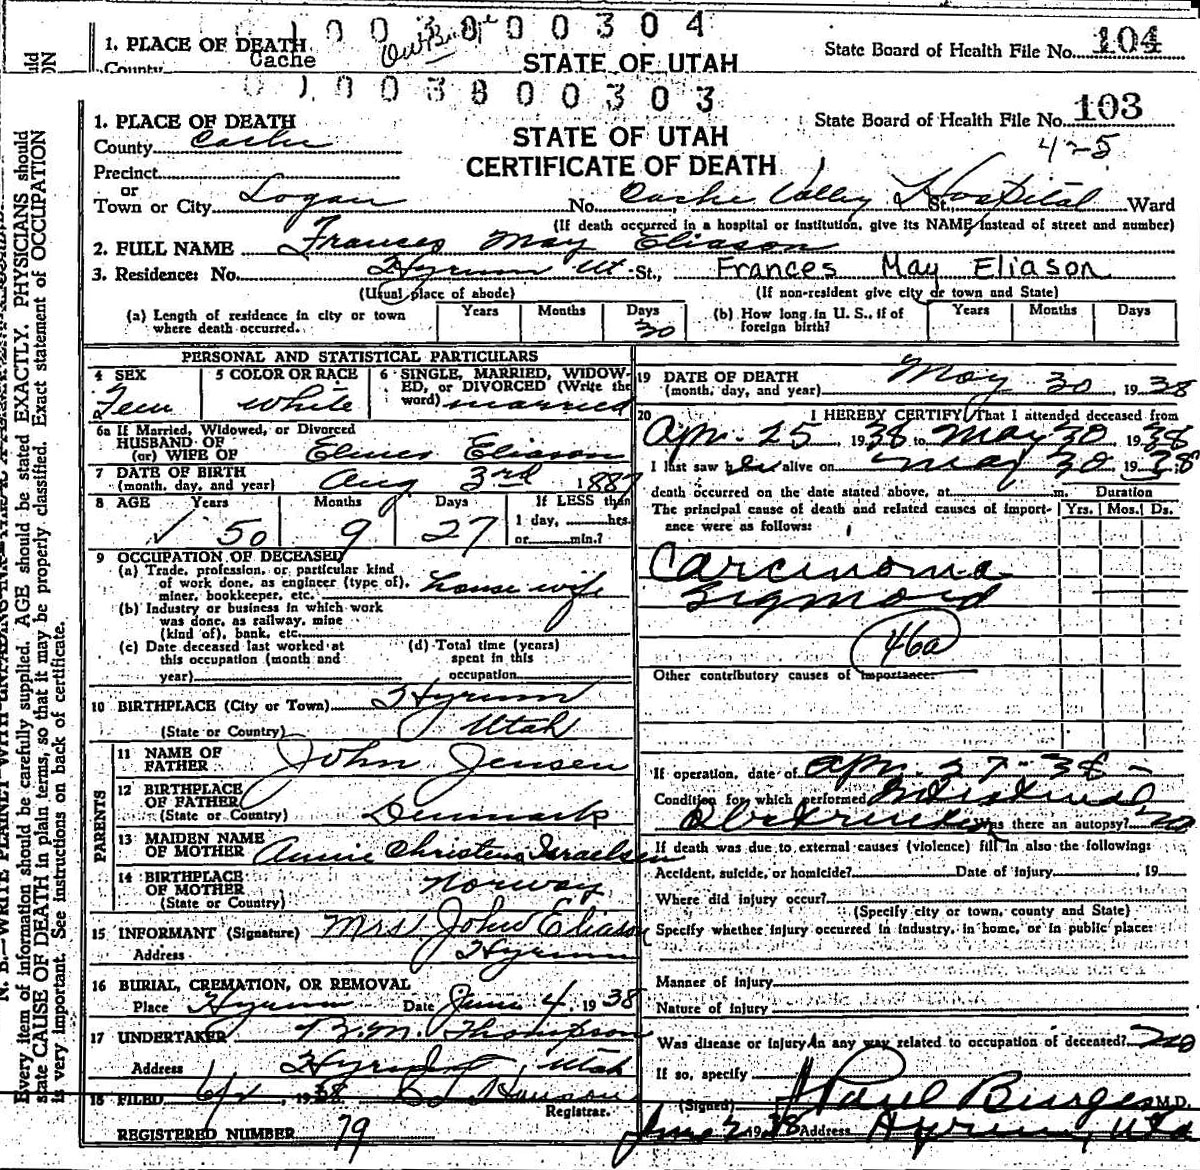 0 0 3 8 0 0 3 0 4
1. PLACE OF DEATH
State Board of Health File No. 104
County Cache
STATE OF UTAH
0 1 0 0 3 8 0 0 3 0 3
1. PLACE OF DEATH
STATE OF UTAH
State Board of Health File No. 103
County Cache
CERTIFICATE OF DEATH
4-25
Precinct
or
Town or City Logan No. Cache Valley Hospital St. Ward
(If death occurred in a hospital or institution, give its NAME instead of street and number)
2. FULL NAME Frances May Eliason
3. Residence: No. Hyrum Ut. St., Frances May Eliason
(Usual place of abode) (If non-resident give city or town and State)
(a) Length of residence in city or town where death occurred. Years Months Days 30
(b) How long in U. S., if of foreign birth? Years Months Days
PERSONAL AND STATISTICAL PARTICULARS
4 SEX Fem
5 COLOR OR RACE White
6 SINGLE, MARRIED, WIDOWED, or DIVORCED (Write the word) married
6a If Married, Widowed, or Divorced
HUSBAND OF
(or) WIFE OF Elmer Eliason
7 DATE OF BIRTH
(month, day, and year) Aug 3rd 1887
8 AGE Years 50 Months 9 Days 27 If LESS than
1 day, hrs.
or min.?
9 OCCUPATION OF DECEASED
(a) Trade, profession, or particular kind
of work done, as engineer (type of),
miner, bookkeeper, etc. house wife
(b) Industry or business in which work
was done, as railway, mine
(kind of), bank, etc.
(c) Date deceased last worked at
this occupation (month and
year)
(d) Total time (years)
spent in this
occupation
10 BIRTHPLACE (City or Town) Hyrum
(State or Country) Utah
PARENTS
11 NAME OF
FATHER John Jensen
12 BIRTHPLACE
OF FATHER
(State or Country) Denmark
13 MAIDEN NAME
OF MOTHER Annie Christena Israelsen
14 BIRTHPLACE
OF MOTHER Norway
(State or Country)
15 INFORMANT (Signature) Mrs John Eliason
Address Hyrum
16 BURIAL, CREMATION, OR REMOVAL
Place Hyrum Date June 4, 1938
17 UNDERTAKER B. M. Thompson
Address Hyrum Utah
18 FILED 6/2 1938
Registrar.
REGISTERED NUMBER 79
19 DATE OF DEATH
(month, day, and year) May 30 1938
20 I HEREBY CERTIFY, That I attended deceased from
Apr. 25 1938 to May 30 1938
I last saw her alive on May 30 1938
death occurred on the date stated above, at m. Duration
The principal cause of death and related causes of importance were as follows: Yrs. Mos. Ds.
Carcinoma
Sigmoid
46a
Other contributory causes of importance:
If operation, date of Apr. 27-38
Condition for which performed Intestinal
Obstruction Was there an autopsy? no
If death was due to external causes (violence) fill in also the following:
Accident, suicide, or homicide? Date of injury 19
Where did injury occur?
(Specify city or town, county and State)
Specify whether injury occurred in industry, in home, or in public place:
Manner of injury
Nature of injury
Was disease or injury in any way related to occupation of deceased? no
If so, specify
(Signed) Paul Burgess M.D.
June 2 1938 Address Hyrum, Utah
Every item of information should be carefully supplied. AGE should be stated EXACTLY. PHYSICIANS should
state CAUSE OF DEATH in plain terms, so that it may be properly classified. Exact statement of OCCUPATION
is very important. See instructions on back of certificate.